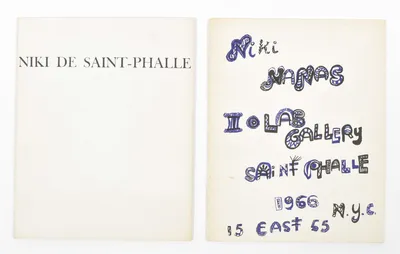 NIKI DE SAINT-PHALLE
Niki
NANAS
II LAB
GALLERY
SAiNT PHALLE
1966 N.Y.C.
15 EAST 55